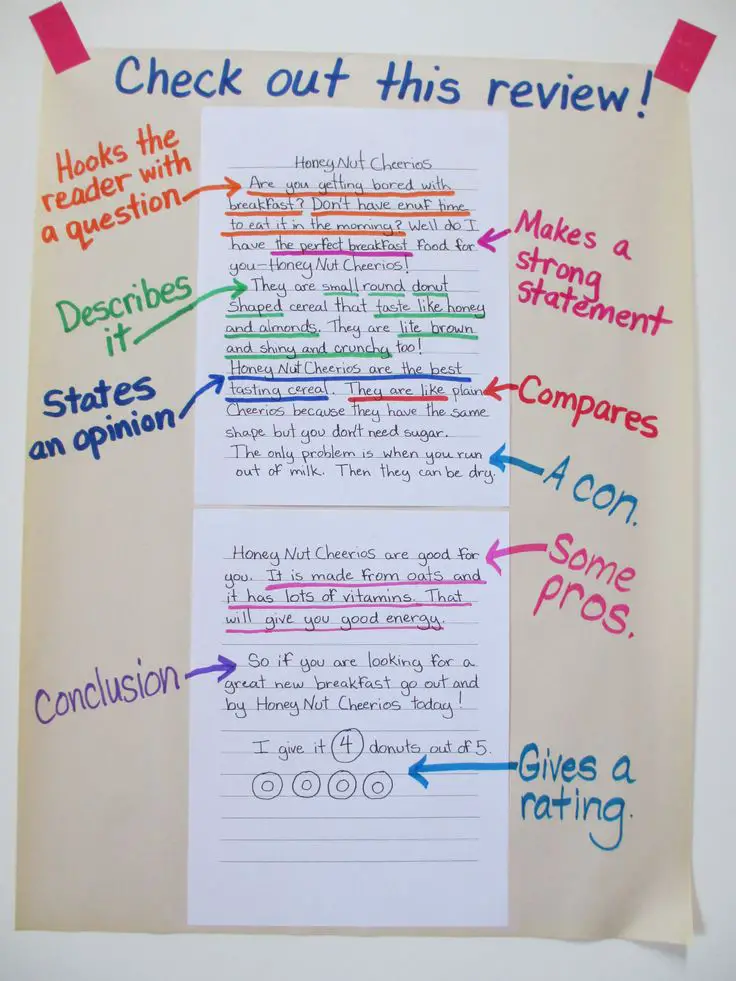 Check out this review!
Hooks the
reader with
a question
Honey Nut Cheerios
Are you getting bored with
breakfast? Don't have enuf time
to eat it in the morning? Well do I
have the perfect breakfast food for
you-Honey Nut Cheerios!
Makes a
strong
statement
Describes
it
They are small round donut
shaped cereal that taste like honey
and almonds. They are lite brown
and shiny and crunchy too!
States
an opinion
Honey Nut Cheerios are the best
tasting cereal. They are like plain
Cheerios because they have the same
shape but you don't need sugar.
Compares
The only problem is when you run
out of milk. Then they can be dry.
A con.
Honey Nut Cheerios are good for
you. It is made from oats and
it has lots of vitamins. That
will give you good energy.
Some
pros.
Conclusion
So if you are looking for a
great new breakfast go out and
by Honey Nut Cheerios today!
I give it 4 donuts out of 5.
Gives a
rating.